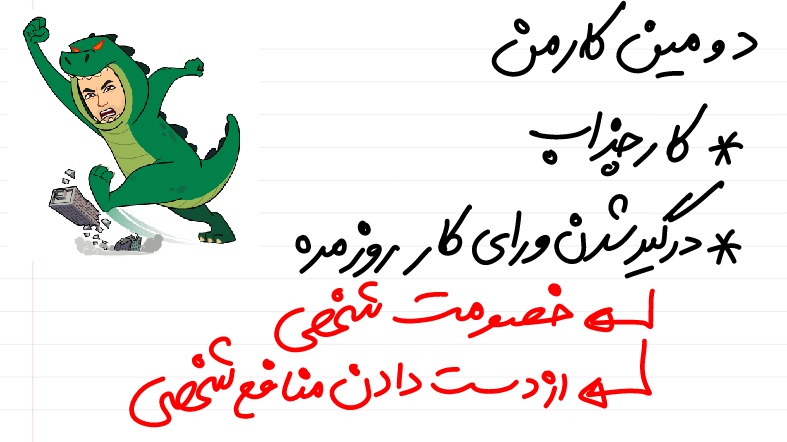 دومین کار من
* کار جذاب
* درگیر شدن ورای کار روزمره
خصومت شخصی
از دست دادن منافع شخصی